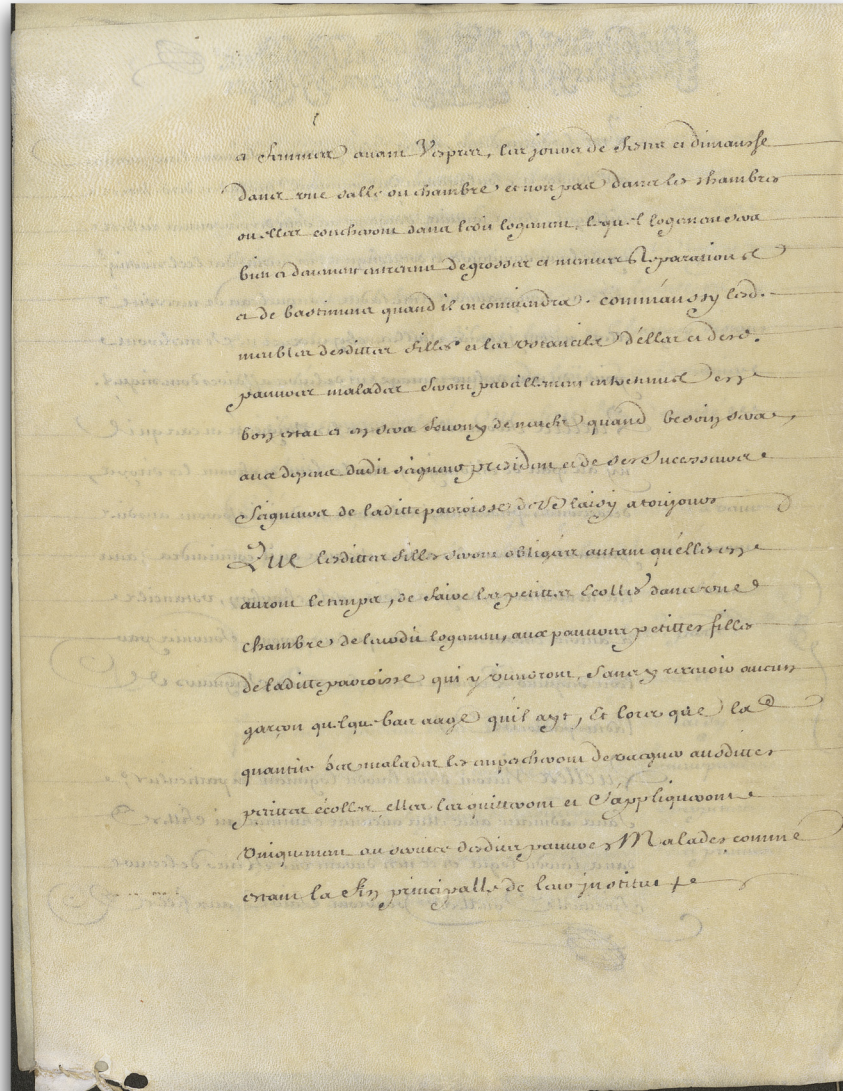 et femmes avant Vespres, les jours de festes et dimansche
dans une salle ou chambre et non pas dans les chambres
ou elles coucheront dans leur logement, lequel logement sera
bien et deument entretenu de grosses et menues Reparations
et de bastimens quand il en conviendra. comme aussy lesd.
meubles desdittes filles et les ustancilles d'elles et desd.
pauvres malades seront pareillement entretenus en
bon estat et en sera fourny de neufs quand besoin sera,
aux depens dudit seigneur president et de ses successeurs
seigneurs de laditte parroisse de a toujours
Que lesdittes filles seront obligées autant qu'elles en
auront le temps, de faire les petittes Ecolles dans une
chambre de leurdit logement, aux pauvres petittes filles
de laditte parroisse qui y viendront, sans y recevoir aucun
garçon quelque bas aage qu'il ayt, Et lors que la
quantité des malades les empeschront de vacquer ausdittes
petittes écolles, elles les quitteront et s'appliqueront
Uniquement au service desdits pauvres Malades comme
estant la fin principalle de leur institut